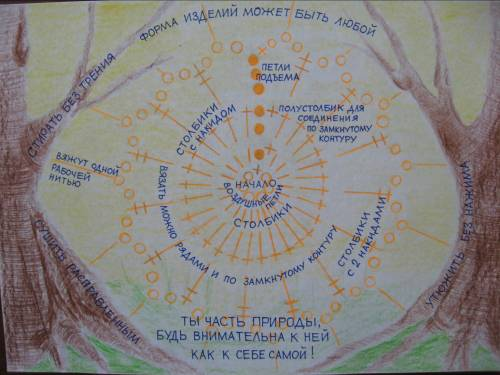 ФОРМА ИЗДЕЛИЙ МОЖЕТ БЫТЬ ЛЮБОЙ
СТИРАТЬ БЕЗ ТРЕНИЯ
ПЕТЛИ
ПОДЪЕМА
СТОЛБИКИ
С НАКИДОМ
ПОЛУСТОЛБИК ДЛЯ
СОЕДИНЕНИЯ
ПО ЗАМКНУТОМУ
КОНТУРУ
ВЯЖУТ ОДНОЙ
РАБОЧЕЙ
НИТЬЮ
НАЧАЛО
ВОЗДУШНЫЕ
ПЕТЛИ
СТОЛБИКИ
ВЯЗАТЬ МОЖНО РЯДАМИ И ПО ЗАМКНУТОМУ КОНТУРУ
СТОЛБИКИ
С 2 НАКИДАМИ
СУШИТЬ РАСПРАВЛЕННЫМ
УТЮЖИТЬ БЕЗ НАЖИМА
ТЫ ЧАСТЬ ПРИРОДЫ,
БУДЬ ВНИМАТЕЛЬНА К НЕЙ
КАК К СЕБЕ САМОЙ!